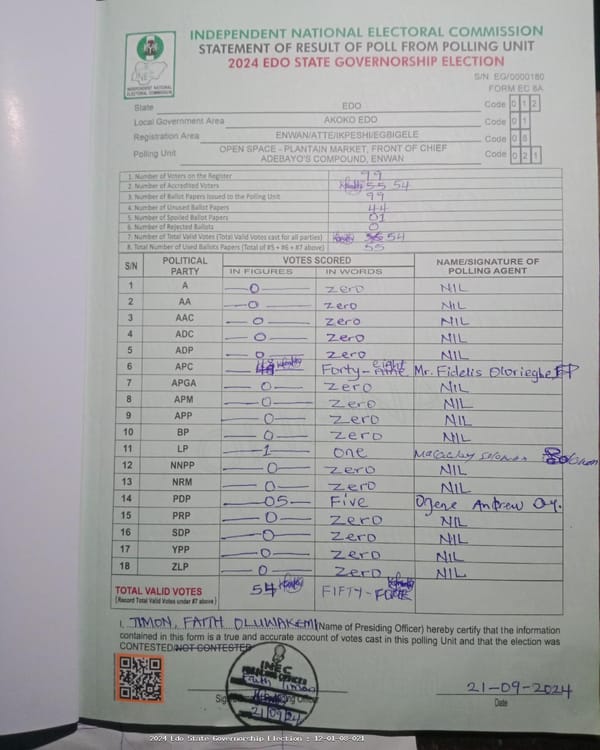 INDEPENDENT NATIONAL ELECTORAL COMMISSION
STATEMENT OF RESULT OF POLL FROM POLLING UNIT
2024 EDO STATE GOVERNORSHIP ELECTION
S/N EG/0000180
FORM EC 8A
INEC
INDEPENDENT NATIONAL ELECTORAL COMMISSION
State EDO Code 0 1 2
Local Government Area AKOKO EDO Code 0 1
Registration Area ENWAN/ATTE/IKPESHI/EGBIGELE Code 0 8
Polling Unit OPEN SPACE - PLANTAIN MARKET, FRONT OF CHIEF ADEBAYO'S COMPOUND, ENWAN Code 0 2 1
1. Number of Voters on the Register 99
2. Number of Accredited Voters 55 54
3. Number of Ballot Papers Issued to the Polling Unit 99
4. Number of Unused Ballot Papers 44
5. Number of Spoiled Ballot Papers 01
6. Number of Rejected Ballots 0
7. Number of Total Valid Votes (Total Valid Votes cast for all parties) 54
8. Total Number of Used Ballots Papers (Total of #5 + #6 + #7 above) 55
S/N POLITICAL PARTY VOTES SCORED NAME/SIGNATURE OF POLLING AGENT
IN FIGURES IN WORDS
1 A 0 Zero NIL
2 AA 0 Zero NIL
3 AAC 0 Zero NIL
4 ADC 0 Zero NIL
5 ADP 0 Zero NIL
6 APC 48 Forty-eight nine Mr. Fidelis
7 APGA 0 Zero NIL
8 APM 0 Zero NIL
9 APP 0 Zero NIL
10 BP 0 Zero NIL
11 LP 1 one
12 NNPP 0 Zero NIL
13 NRM 0 Zero NIL
14 PDP 05 Five Ogene Andrew
15 PRP 0 Zero NIL
16 SDP 0 Zero NIL
17 YPP 0 Zero NIL
18 ZLP 0 Zero NIL
TOTAL VALID VOTES 54 FIFTY-
(Record Total Valid Votes under #7 above)
I, TIMON, FAITH OLUWAKEMI (Name of Presiding Officer) hereby certify that the information
contained in this form is a true and accurate account of votes cast in this polling Unit and that the election was
CONTESTED/NOT CONTESTED
INEC
Faith Timon
21/09/24
21-09-2024
Date
2024 Edo State Governorship Election : 12-01-08-021